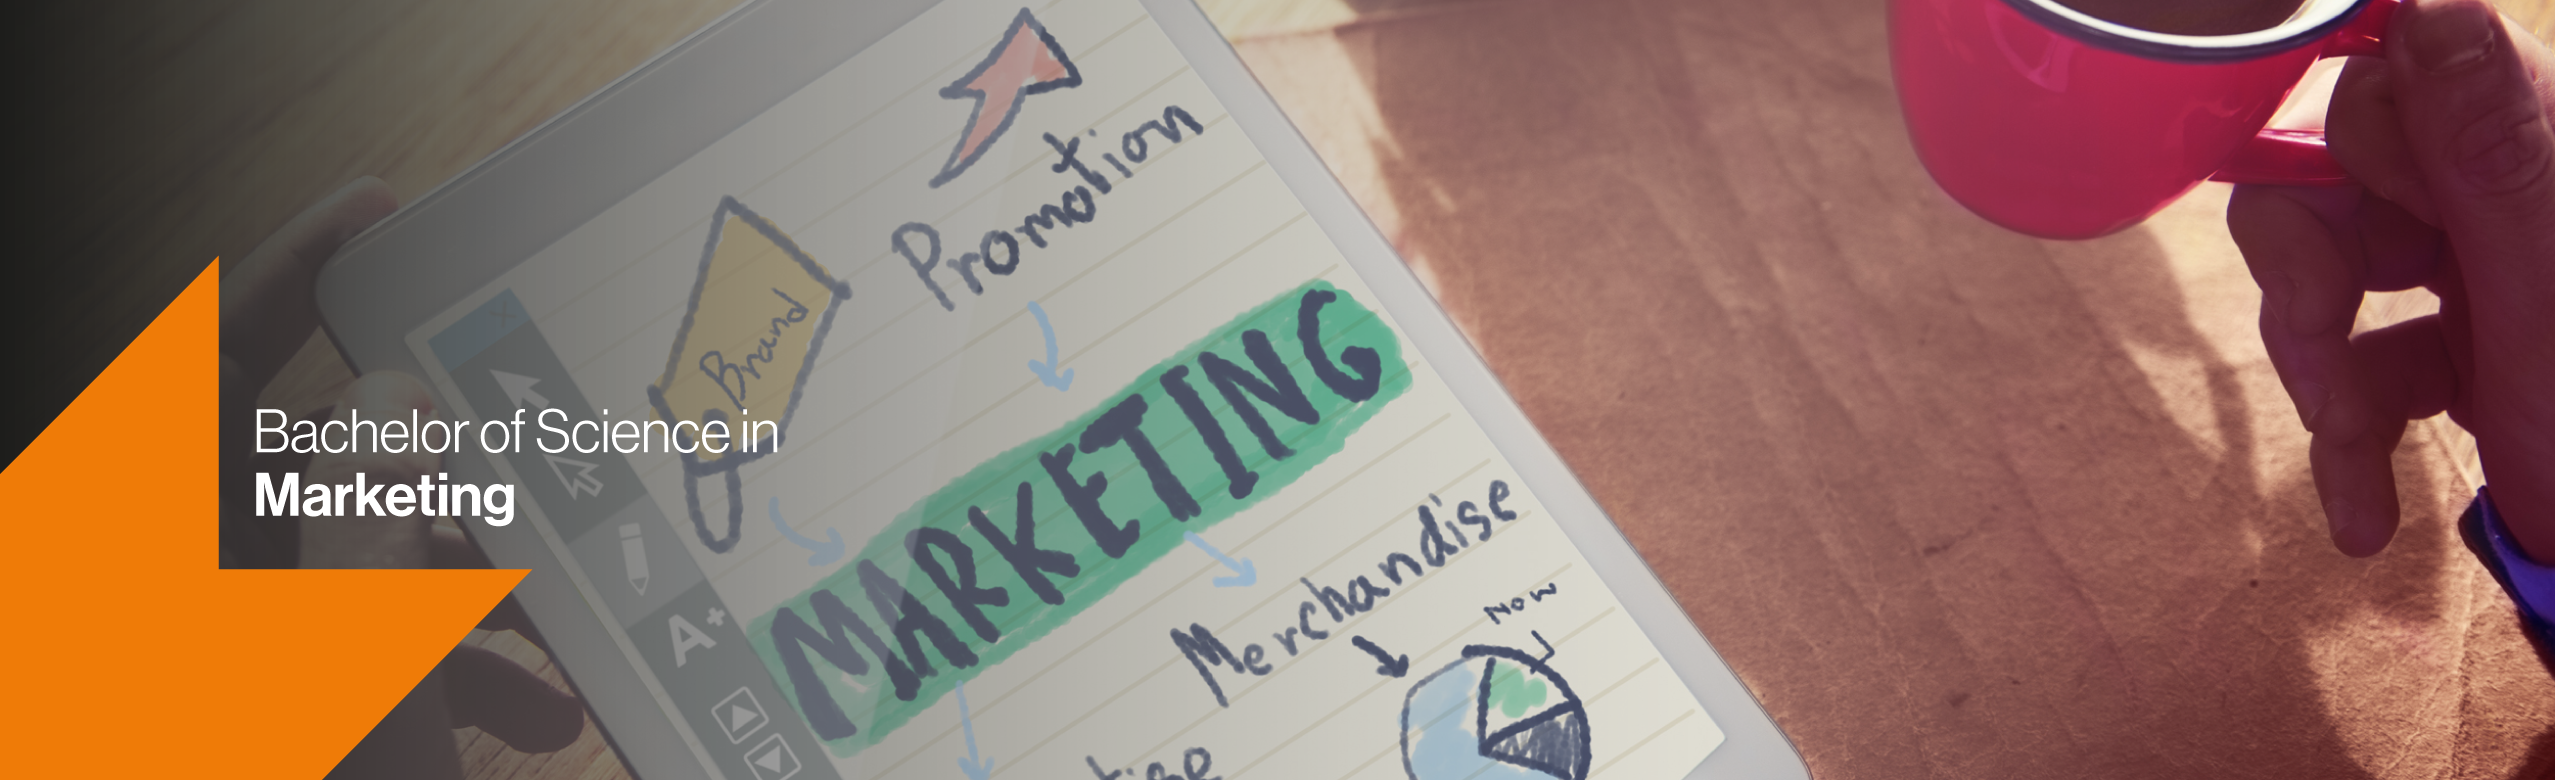 Bachelor of Science in
Marketing
Promotion
Brand
MARKETING
Merchandise
Now
A+